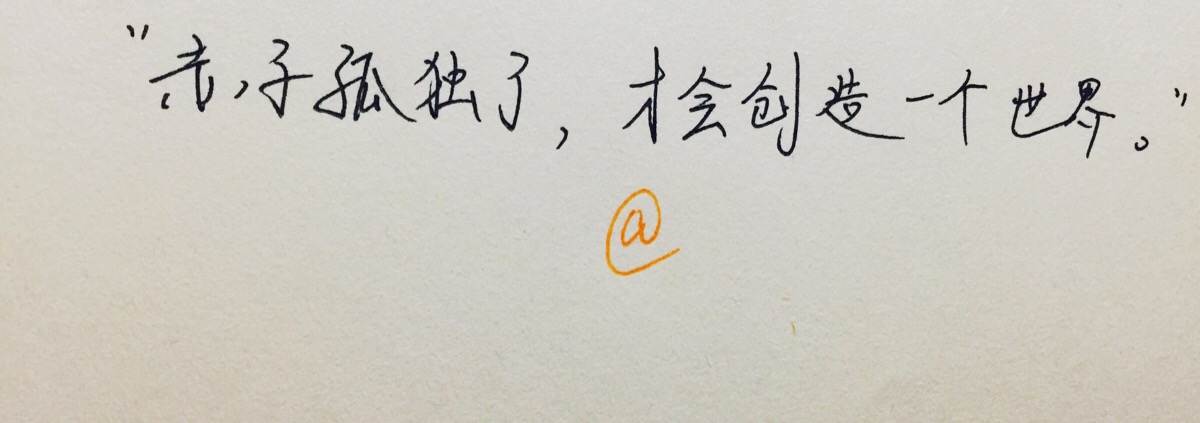 "赤子孤独了，才会创造一个世界。"
@